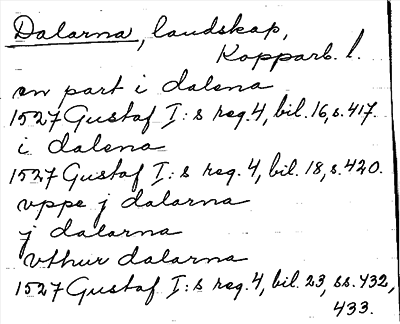 Dalarna, landskap,
Kopparb. l.
en part i dalena
1527 Gustaf I:s reg. 4, bil. 16, s. 417.
i dalena
1527 Gustaf I:s reg. 4, bil. 18, s. 420.
vppe j dalarna
j dalarna
vthur dalarna
1527 Gustaf I:s reg. 4, bil. 23, ss. 432,
433.